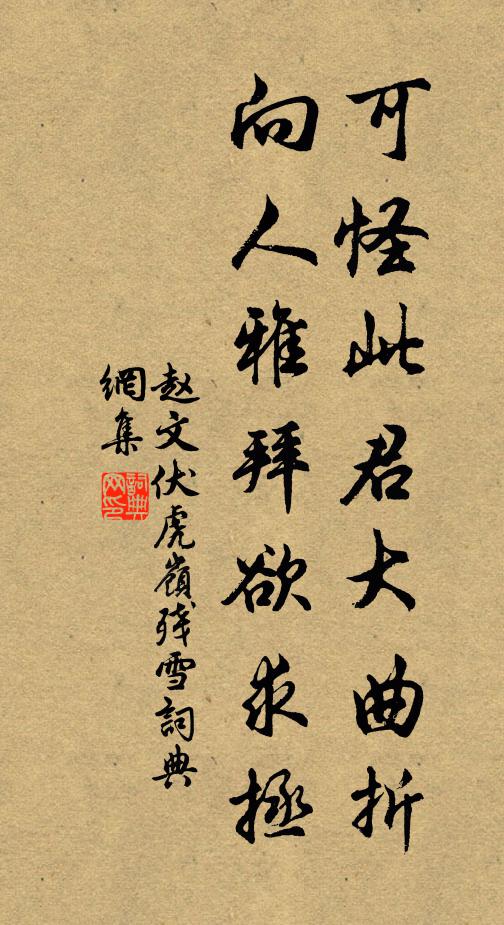 可怪此君大曲折
向人雅拜欲求拯
赵文伏虎嶺残雪詞典
網集
詞典
网印